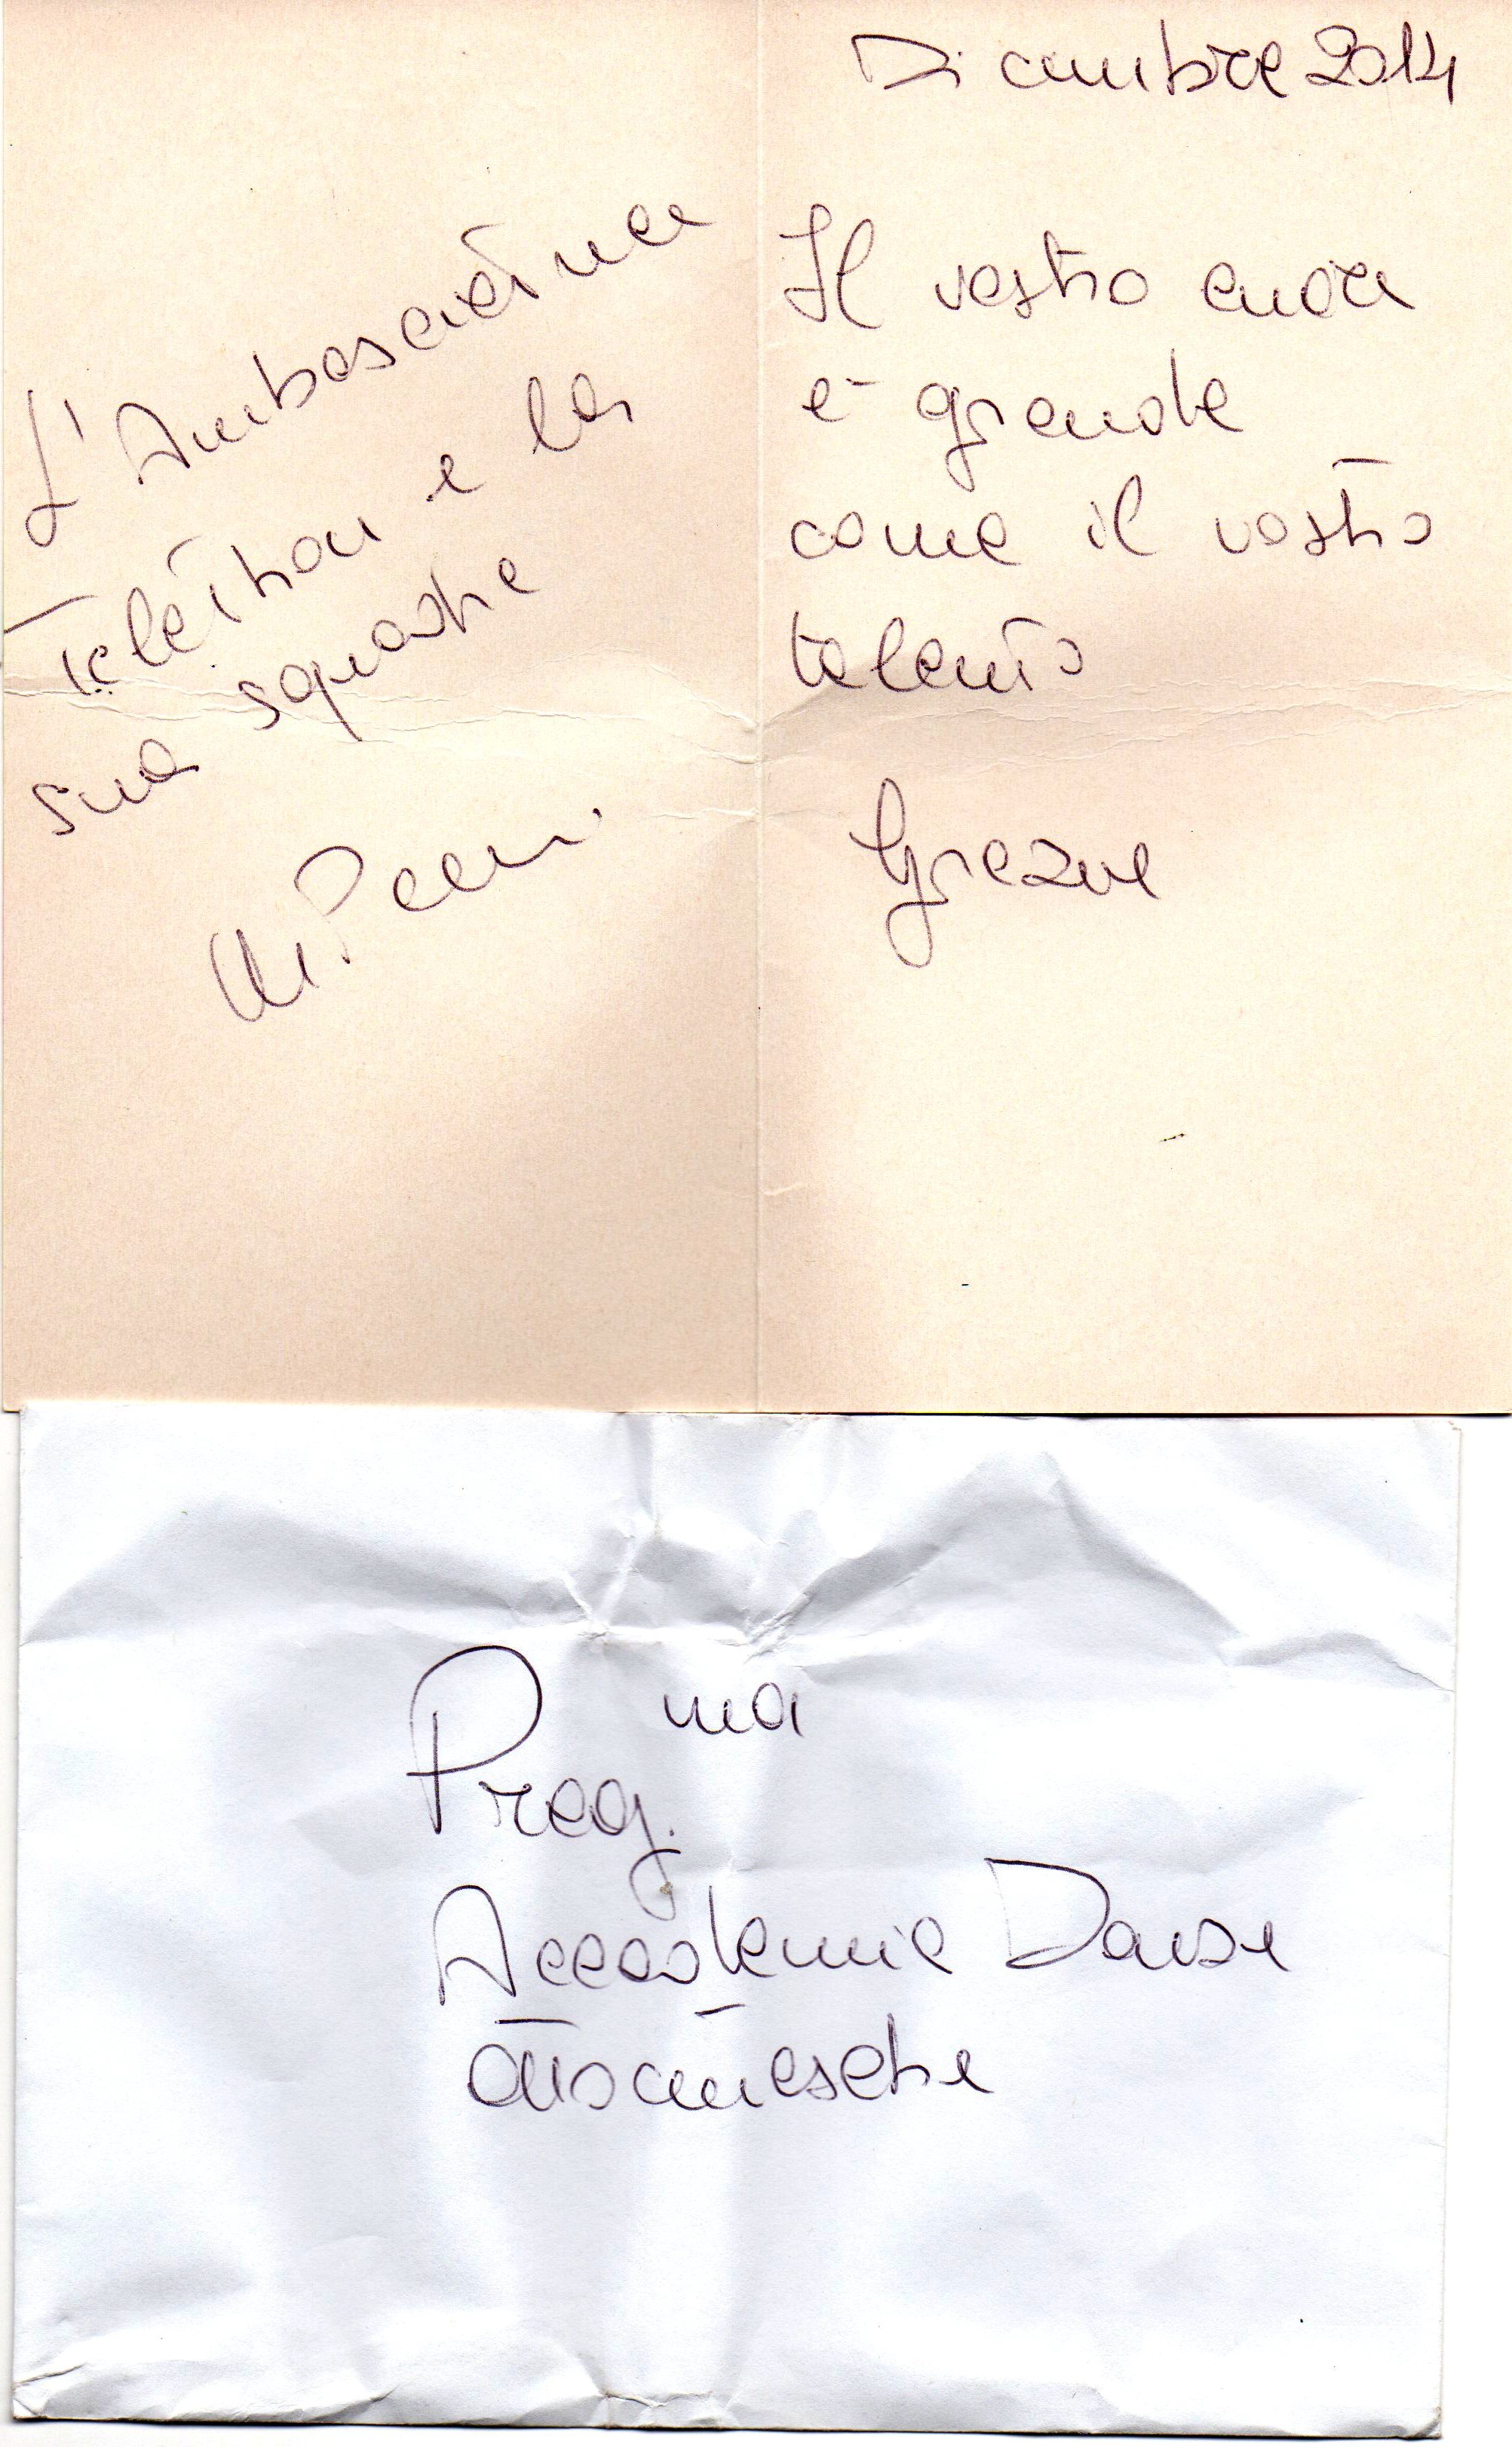 Dicembre 2014
Il vostro cuore
è grande
come il vostro
talento
Grazie
L'Ambasciatrice
Telethon e la
sua squadra
Preg.ma
Accademia Danze
ottocentesche